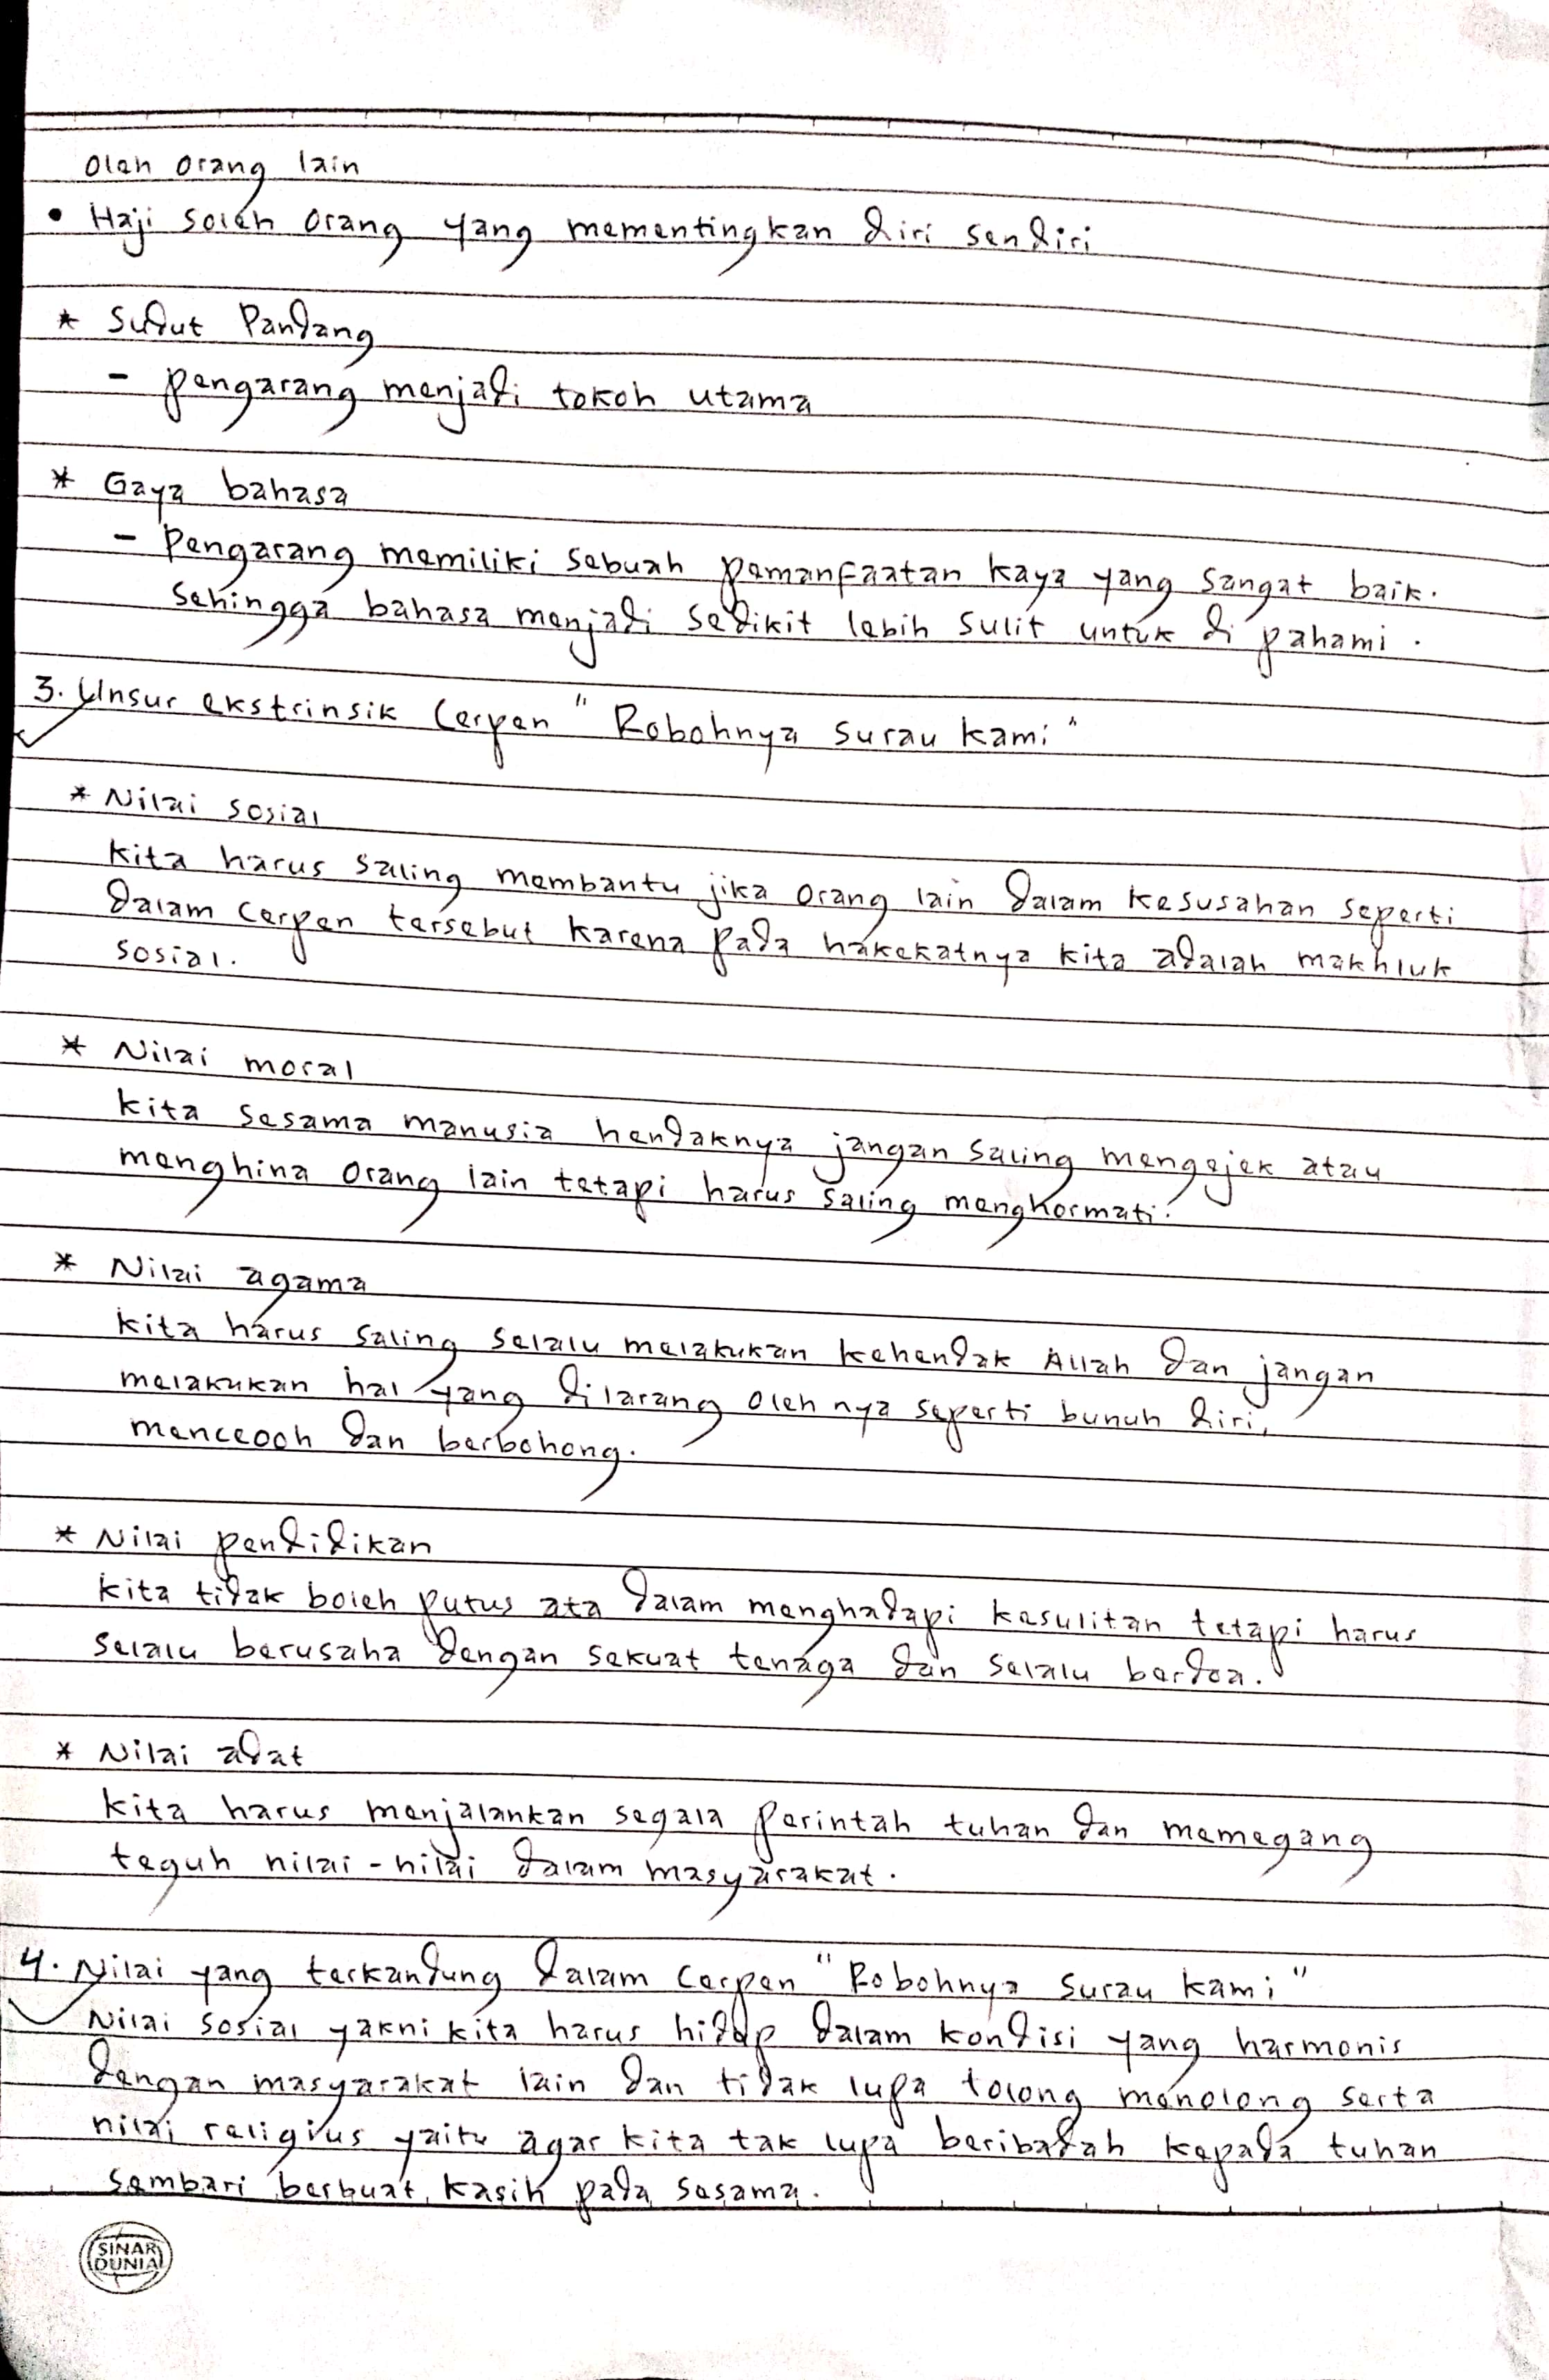 oleh orang lain
• Haji soleh orang yang mementingkan diri sendiri
* Sudut Pandang
- pengarang menjadi tokoh utama
* Gaya bahasa
- Pengarang memiliki sebuah pemanfaatan kaya yang sangat baik.
sehingga bahasa menjadi sedikit lebih sulit untuk di pahami.
3. Unsur ekstrinsik Cerpen "Robohnya surau kami"
* Nilai sosial
kita harus saling membantu jika orang lain dalam kesusahan seperti
dalam cerpen tersebut karena pada hakekatnya kita adalah makhluk
sosial.
* Nilai moral
kita sesama manusia hendaknya jangan saling mengejek atau
menghina orang lain tetapi harus saling menghormati.
* Nilai agama
kita harus saling selalu melakukan kehendak Allah dan jangan
melakukan hal yang dilarang oleh nya seperti bunuh diri,
menceooh dan berbohong.
* Nilai pendidikan
kita tidak boleh putus ata dalam menghadapi kesulitan tetapi harus
selalu berusaha dengan sekuat tenaga dan selalu berdoa.
* Nilai adat
kita harus menjalankan segala perintah tuhan dan memegang
teguh nilai-nilai dalam masyarakat.
4. Nilai yang terkandung dalam cerpen "Robohnya surau kami"
Nilai sosial yakni kita harus hidup dalam kondisi yang harmonis
dengan masyarakat lain dan tidak lupa tolong menolong serta
nilai religius yaitu agar kita tak lupa beribadah kepada tuhan
sembari berbuat kasih pada sesama.
SINAR
DUNIA